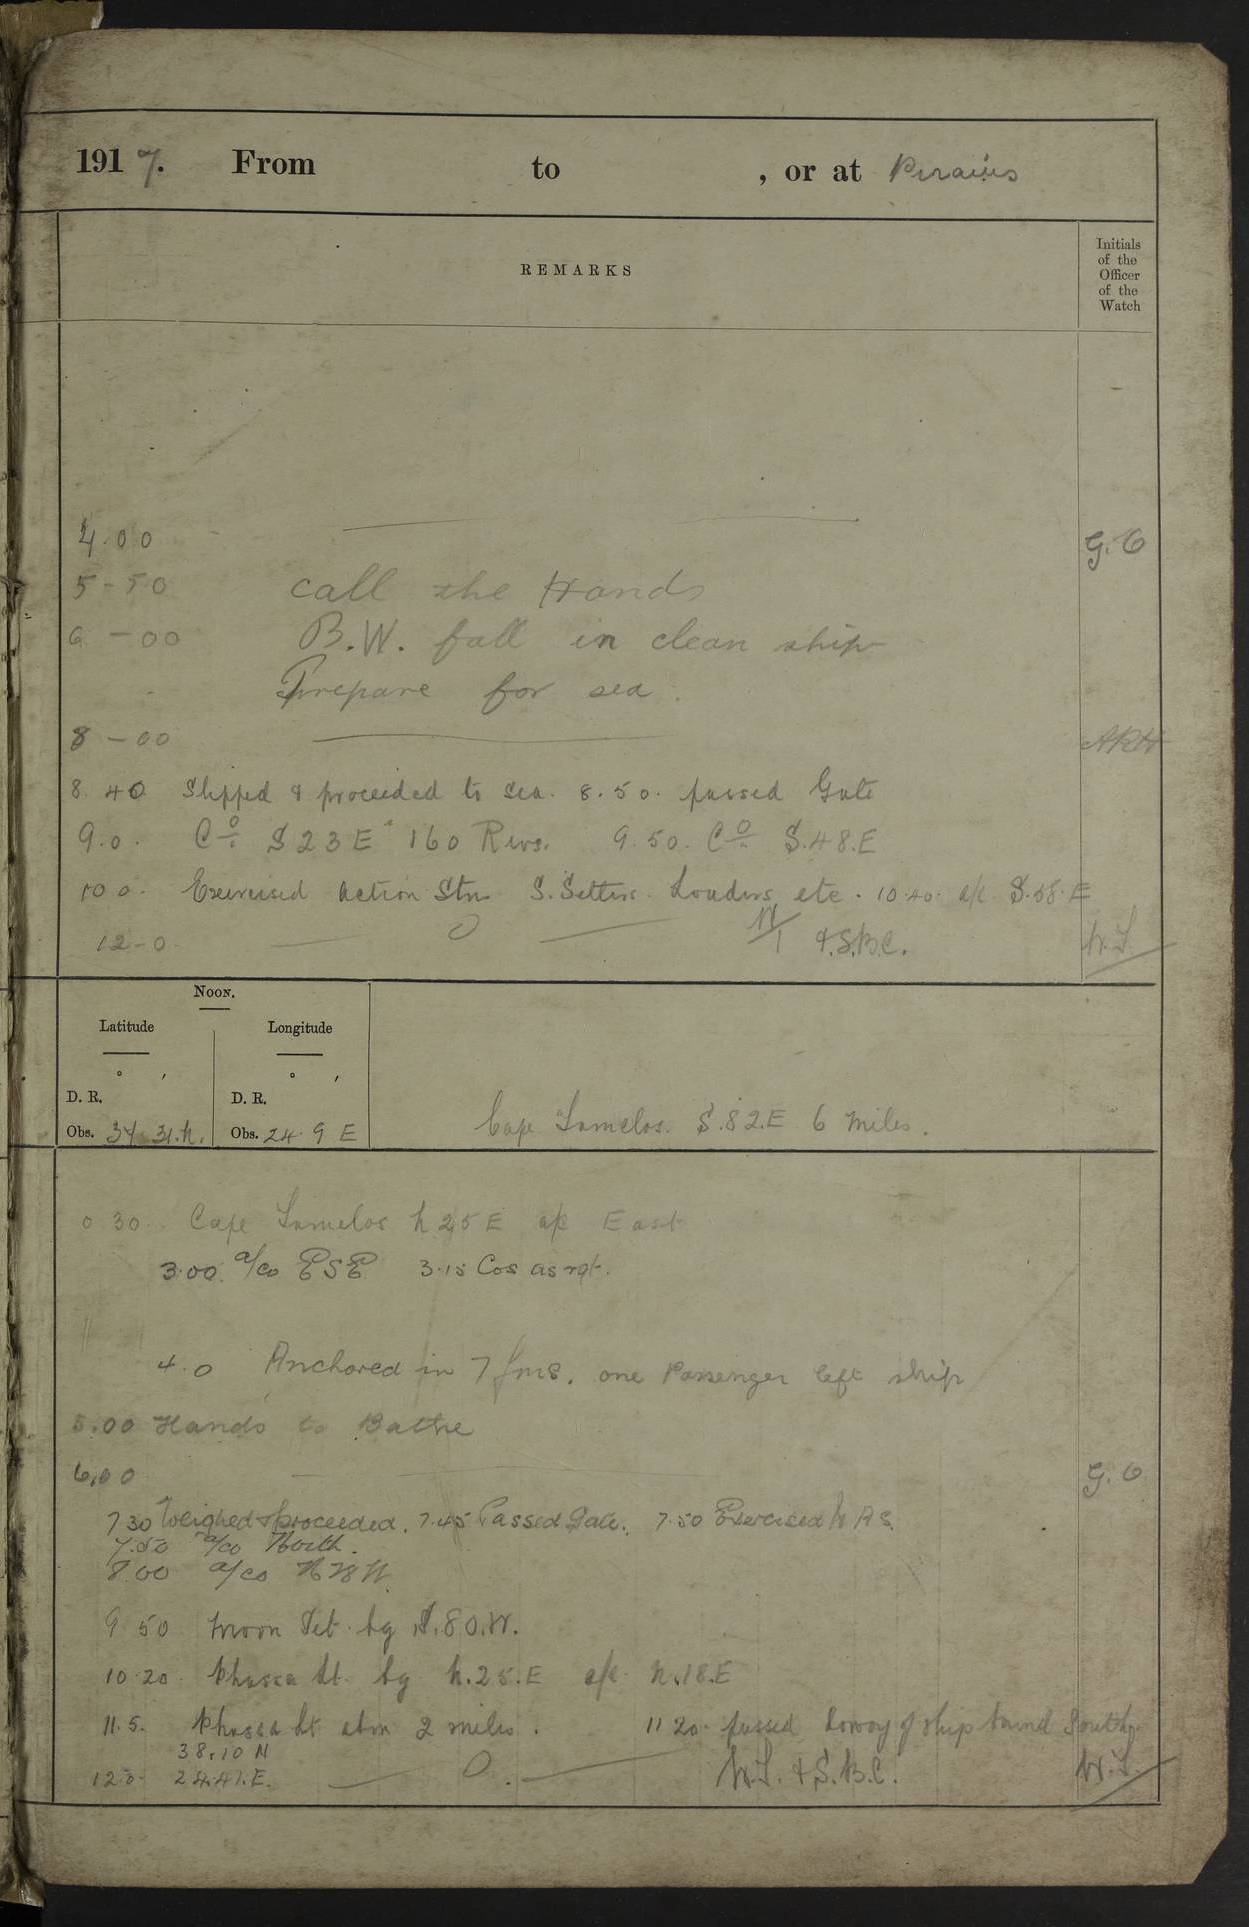 1917. From to , or at Piraeus
REMARKS
Initials
of the
Officer
of the
Watch
4.00 G.C
5-50 Call the Hands
6-00 B.W. fall in clean ship
Prepare for sea.
8-00 ARH
8.40 Slipped & proceeded to sea. 8.50. passed Gate
9.0. Co S 23 E 160 Revs. 9.50. Co S.48.E
10 0. Exercised Action Stns S. Setters. Loaders etc. 10.40. a/c S.58.E
12-0 &.S.B.C.
NOON.
Latitude Longitude
° ′ ° ′
D. R. D. R.
Obs. 37 31.N. Obs. 24 9 E
Cape S.82.E 6 miles.
0 30. Cape N 25 E a/c East
3.00. a/co ESE 3.15 Cos as rqt.
4.0 Anchored in 7 fms. one Passenger left ship
5.00 Hands to Bathe
6.00 G.C
7 30 Weighed & proceeded. 7.45 Passed Gate. 7.50 Exercised
7.50 a/co North.
8.00 a/co N W
9 50 Moon Set bg S.80.W.
10.20. Lt. bg N.25.E a/c N.18.E
11.5. Lt abm 2 miles. 11 20. passed of ship bound South
38.10 N
12.0. 24.41.E. & S.B.C.